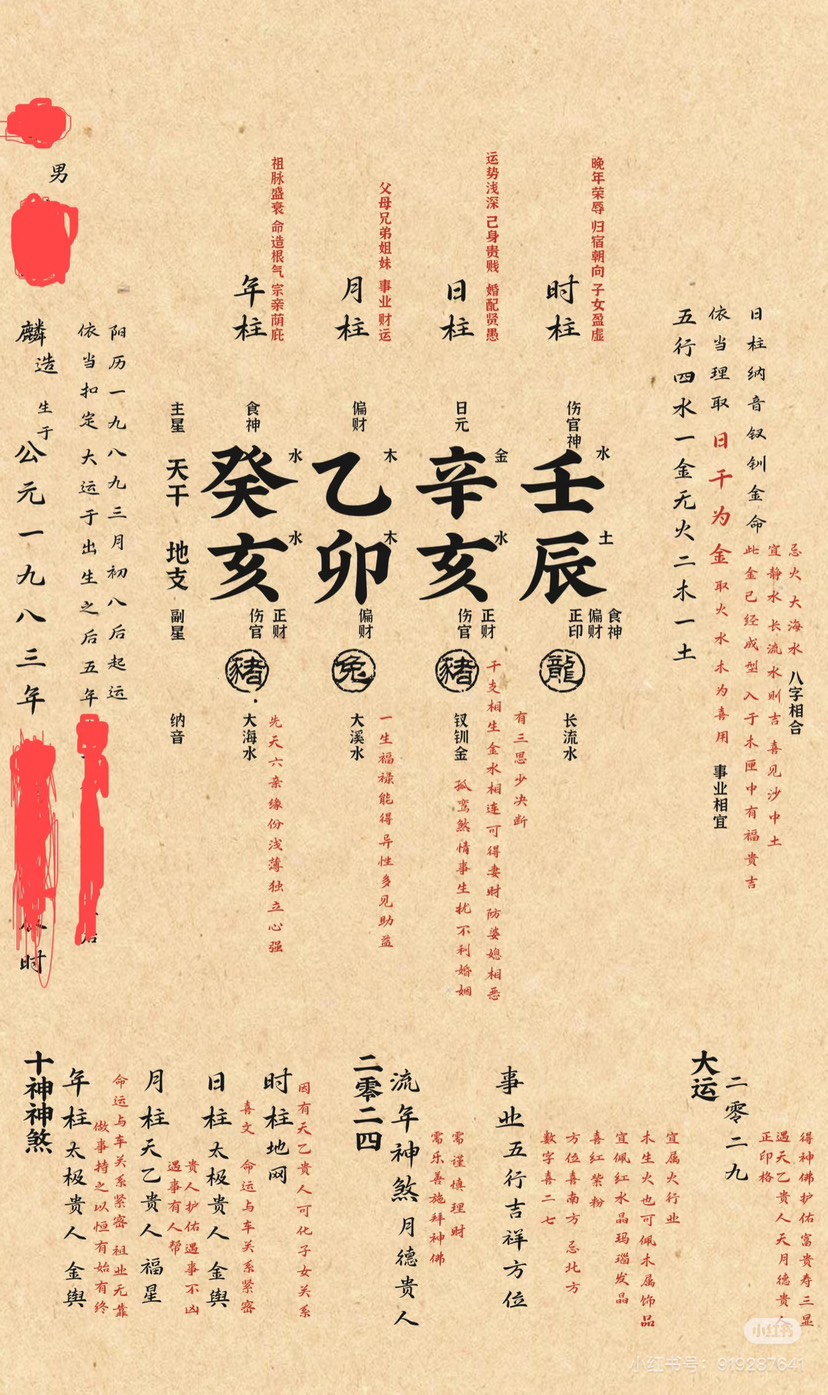 男
麟造
生于
公元一九八三年
时
依当扣定 大运于出生之后五年
后
阳历一九八九三月初八后起运
年柱
祖脉盛衰 命造根气 宗亲荫庇
月柱
父母兄弟姐妹 事业 财运
日柱
运势浅深 己身贵贱 婚配贤愚
时柱
晚年荣辱 归宿朝向 子女盈虚
主星
食神
偏财
日元
伤官神
天干
癸 水
乙 木
辛 金
壬 水
地支
亥 水
卯 木
亥 水
辰 土
副星
伤官 正财
偏财
伤官 正财
正印 偏财 食神
豬
兔
豬
龍
纳音
大海水
大溪水
钗钏金
长流水
先天六亲缘份浅薄独立心强
一生福禄能得异性多见助益
孤鸾煞情事生扰不利婚姻
干支相生金水相连可得妻财防婆媳相恶
有三思少决断
五行四水一金无火二木一土
依当理取日干为金 取火水木为喜用 事业相宜
日柱纳音钗钏金命
此金已经成型 入于木匣中有福贵吉
宜静水 长流水则吉 喜见沙中土
忌火 大海水 八字相合
十神神煞
年柱太极贵人 金舆
做事持之以恒有始有终
命运与车关系紧密 祖业无靠
月柱天乙贵人 福星
遇事有人帮
贵人护佑遇事不凶
日柱太极贵人 金舆
喜文 命运与车关系紧密
时柱地网
因有天乙贵人可化子女关系
二零二四
流年神煞 月德贵人
需乐善施拜神佛
需谨慎理财
事业五行吉祥方位
数字喜二七
方位喜南方 忌北方
喜红紫粉
宜佩红水晶玛瑙发晶
木生火也可佩木属饰品
宜属火行业
大运
二零二九
正印格
遇天乙贵人天月德贵人
得神佛护佑富贵寿三显
小红书
小红书号：919287641